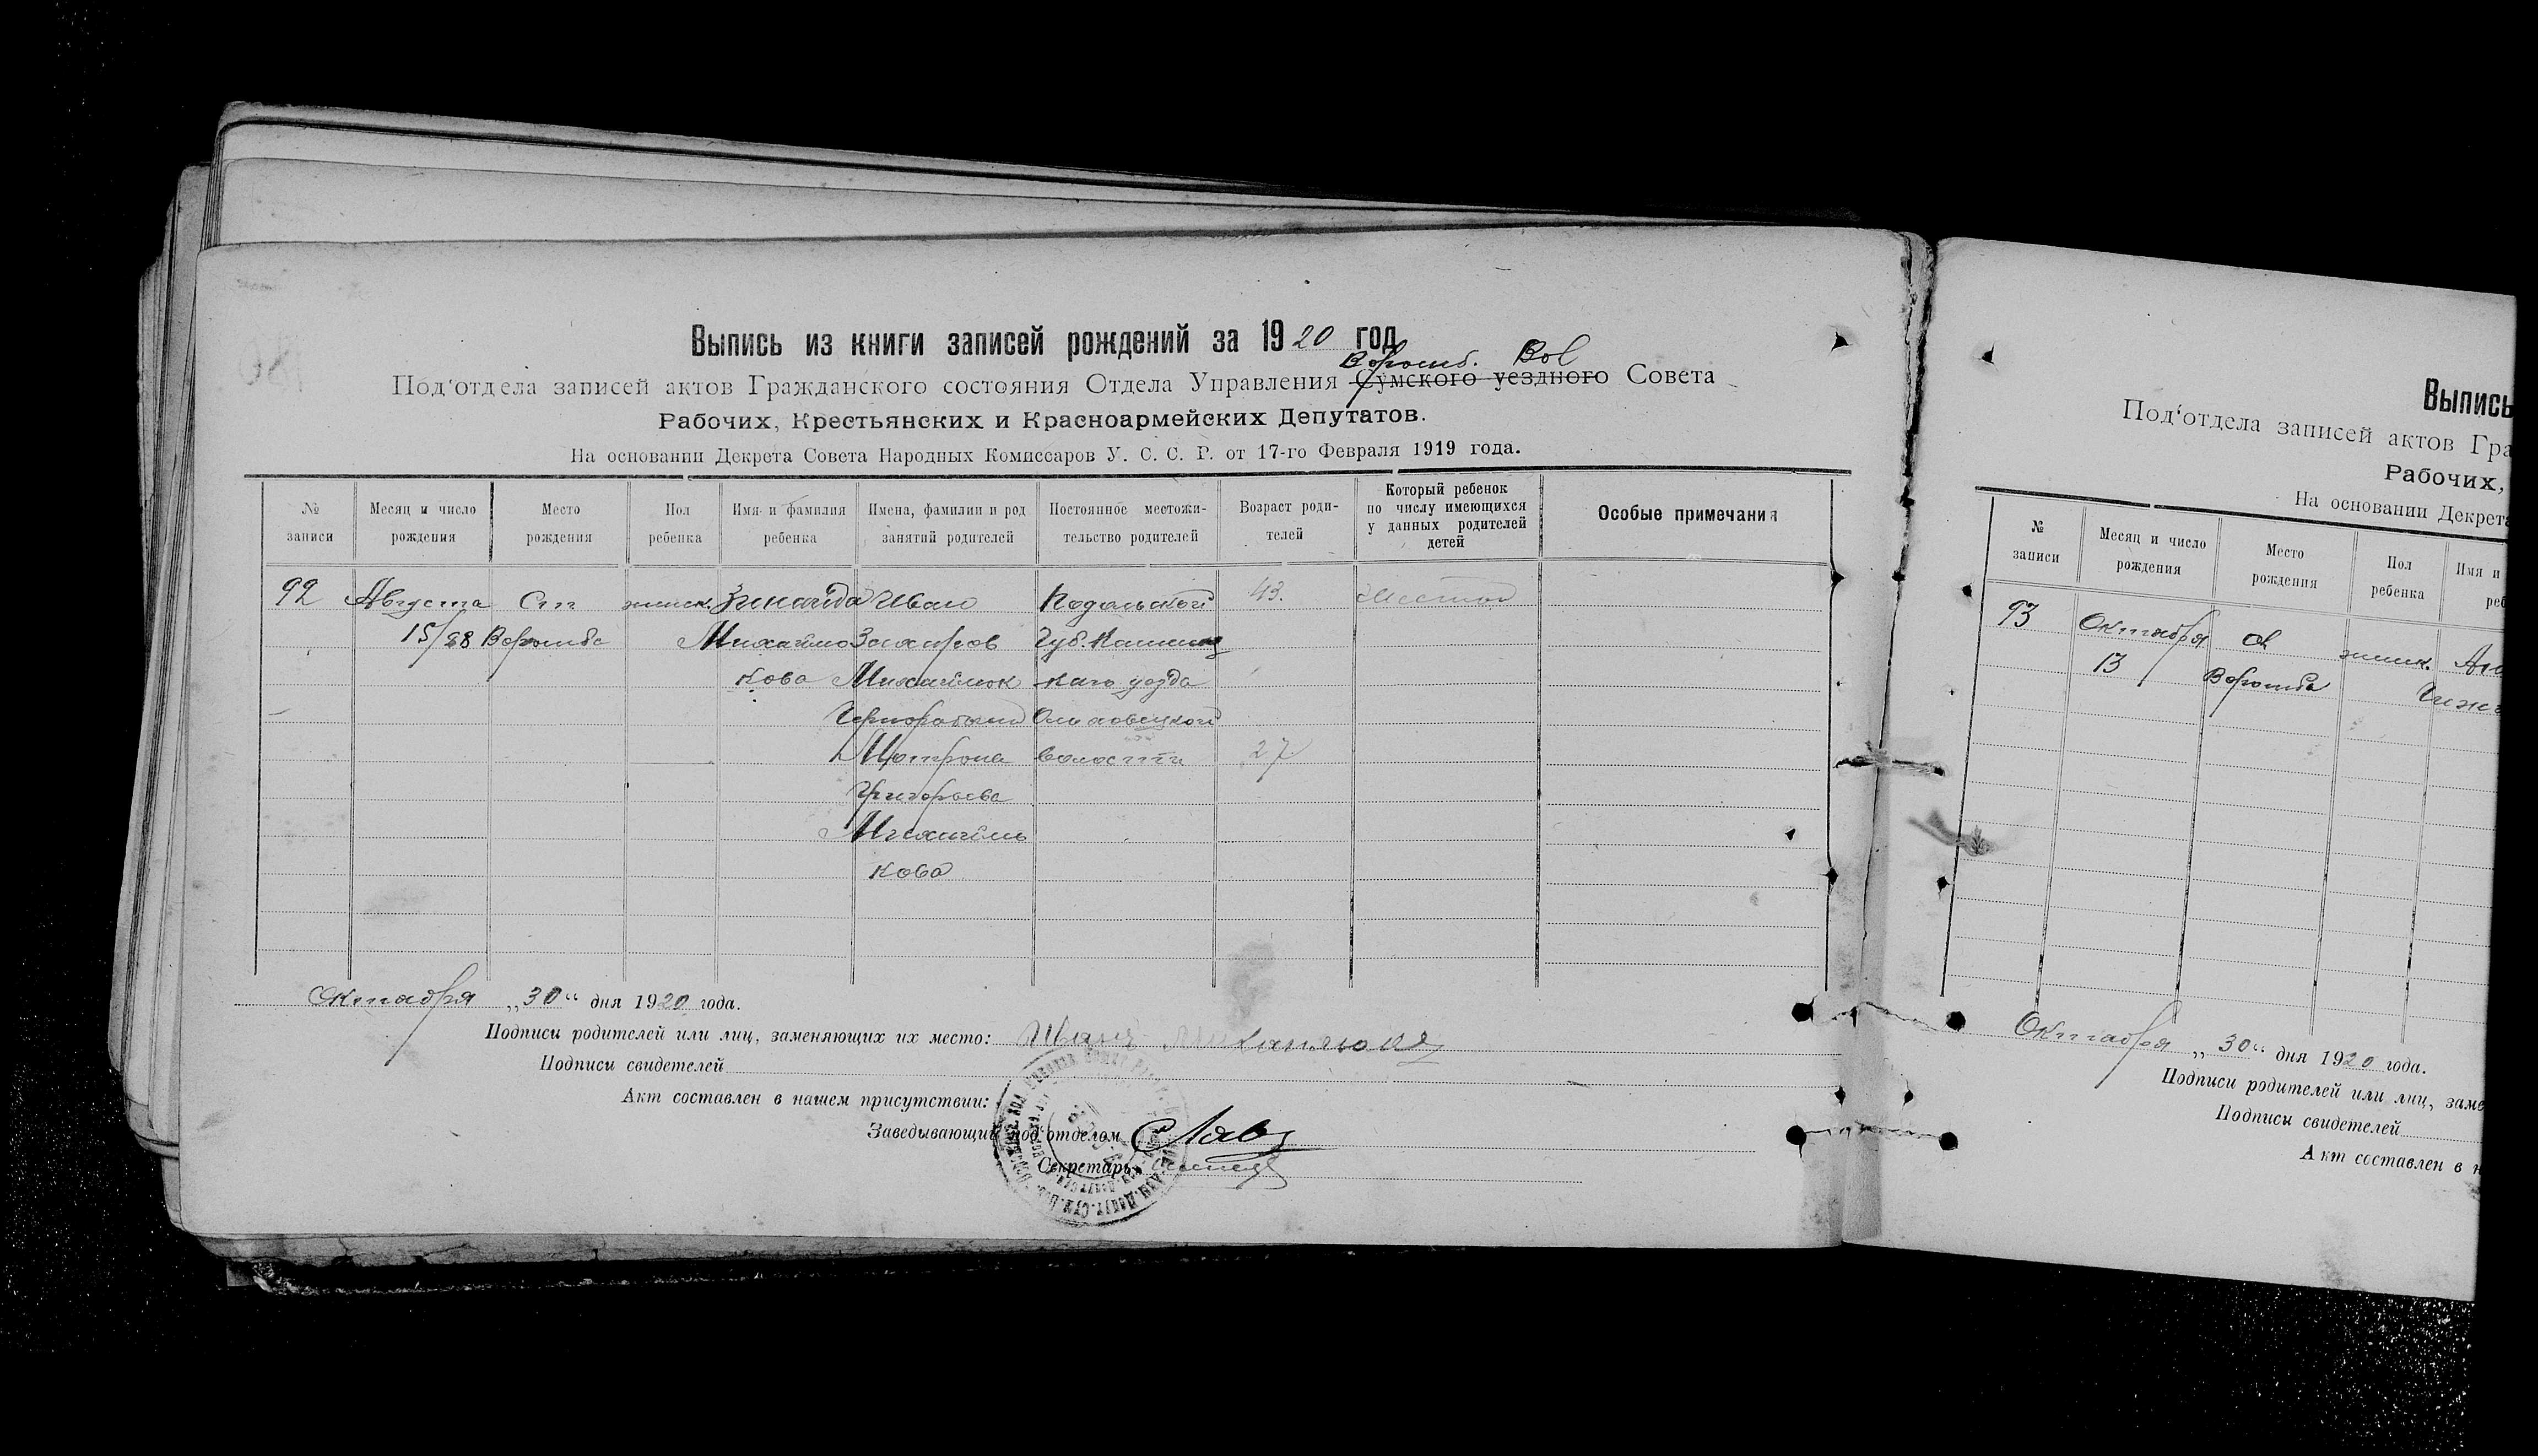 Выпись из книги записей рождений за 1920 год
Воромб. Вол
Под'отдела записей актов Гражданского состояния Отдела Управления Сумского уездного Совета
Рабочих, Крестьянских и Красноармейских Депутатов.
На основании Декрета Совета Народных Комиссаров У. С. С. Р. от 17-го Февраля 1919 года.
№ записи
Месяц и число рождения
Место рождения
Пол ребенка
Имя и фамилия ребенка
Имена, фамилии и род занятий родителей
Постоянное местожи-тельство родителей
Возраст роди-телей
Который ребенок по числу имеющихся у данных родителей детей
Особые примечания
92 Августа Ст женск. Зинаида Иван Подольской 43. Шестой
15/28 Ворожба Михайлю Захаров Губ. Камениц
кова Михайлюк каго уезда
Чернорабочий Ольховецкой
Мотрона волости 27
Григорьева
Михайлю
кова
Октября „30“ дня 1920 года.
Подписи родителей или лиц, заменяющих их место: Иванъ Михайлюкъ
Подписи свидетелей
Акт составлен в нашем присутствии:
Заведывающий под'отделом
Секретарь
Выпись
Под'отдела записей актов Гра
Рабочих,
На основании Декрета
№ записи
Месяц и число рождения
Место рождения
Пол ребенка
Имя и
реб
93 Октября женск.
13 Ворожба
Октября „30“ дня 1920 года.
Подписи родителей или лиц, заме
Подписи свидетелей
Акт составлен в н